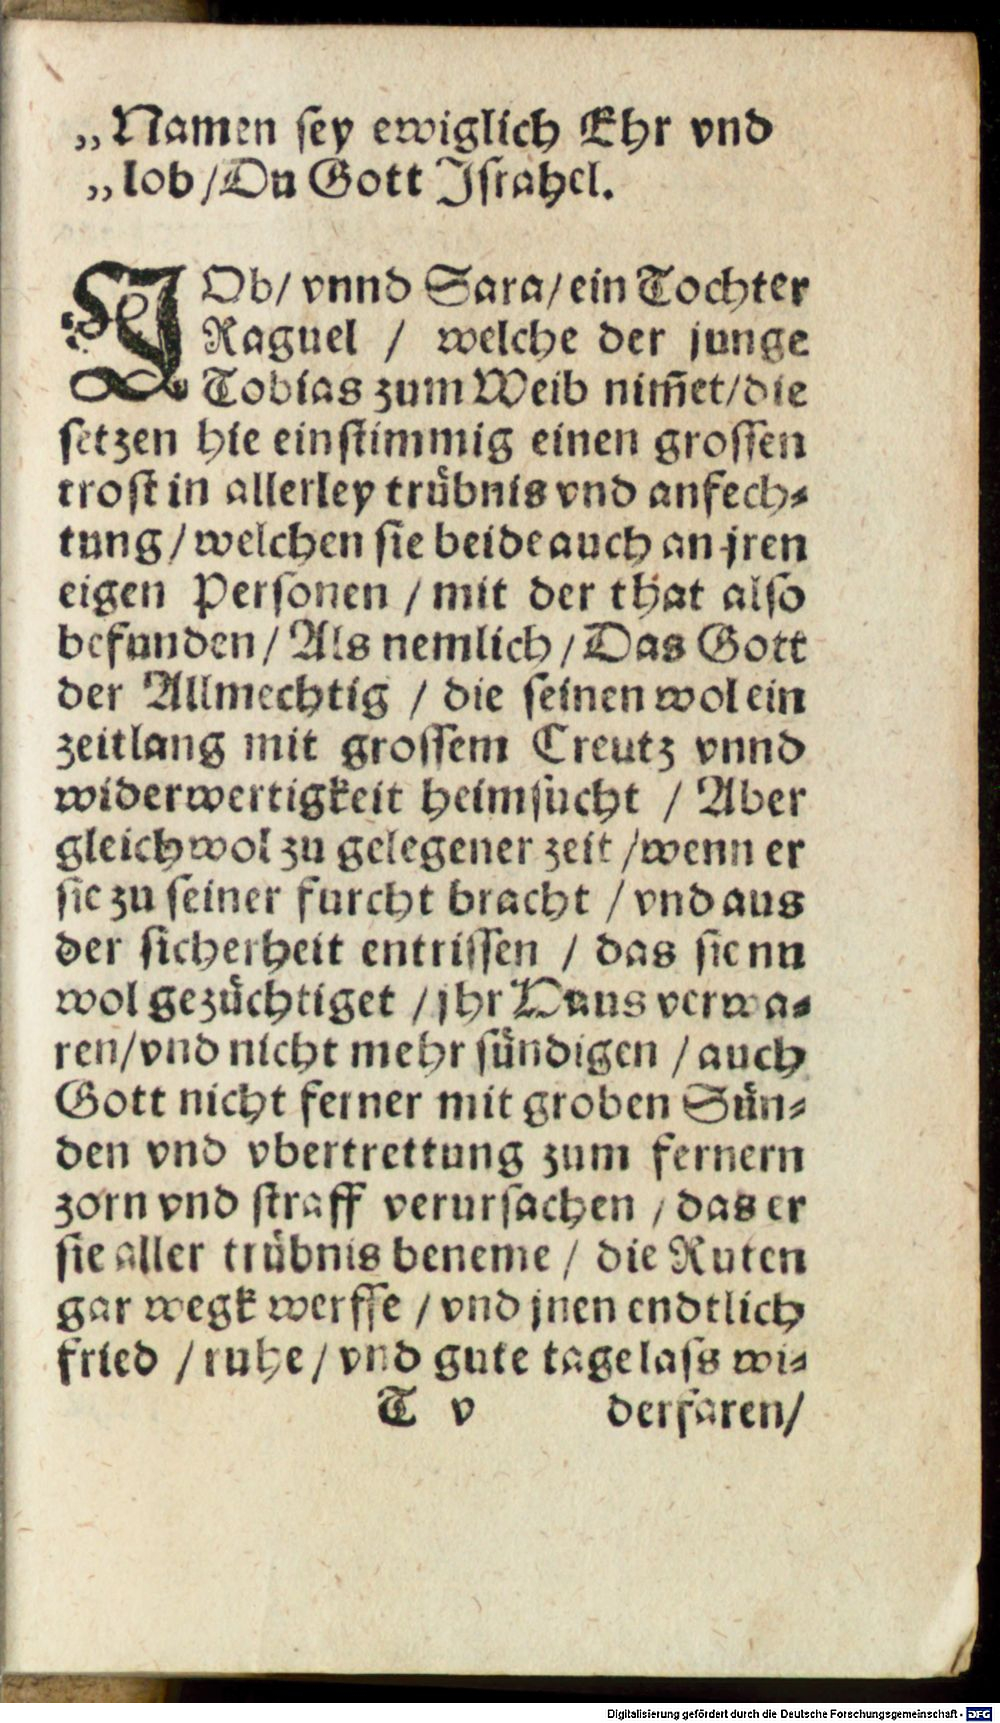 „Namen ſey ewiglich Ehr vnd
„lob/Du Gott Jſrahel.
JOb/ vnnd Sara/ein Tochter
Raguel / welche der junge
Tobias zum Weib nim̃et/die
ſetzen hie einſtimmig einen groſſen
troſt in allerley trübnis vnd anfech⸗
tung/welchen ſie beide auch an jren
eigen Perſonen / mit der that alſo
befunden/ Als nemlich/Das Gott
der Allmechtig / die ſeinen wol ein
zeitlang mit groſſem Creutz vnnd
widerwertigkeit heimſucht / Aber
gleichwol zu gelegener zeit /wenn er
ſie zu ſeiner furcht bracht / vnd aus
der ſicherheit entriſſen / das ſie nu
wol gezüchtiget /jhr Haus verwa⸗
ren/vnd nicht mehr ſündigen /auch
Gott nicht ferner mit groben Sün⸗
den vnd vbertrettung zum fernern
zorn vnd ſtraff verurſachen /das er
ſie aller trübnis beneme / die Ruten
gar wegk werffe /vnd jnen endtlich
fried /ruhe/vnd gute tage laſs wi⸗
T v derfaren/
Digitalisierung gefördert durch die Deutsche Forschungsgemeinschaft - DFG